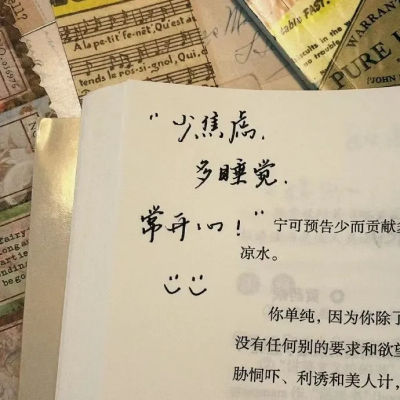 all?
A la petit' fe-nêt', Qu'est au
tends le ros-si-gnol, Qui
dable FAST.
cuits in the
no trouble
WARRANT
PURE
[JOHN
fairy
"少焦虑.
多睡觉.
常开心!"
宁可预告少而贡献
凉水。
你单纯，因为你除了
没有任何别的要求和欲望
胁恫吓、利诱和美人计，